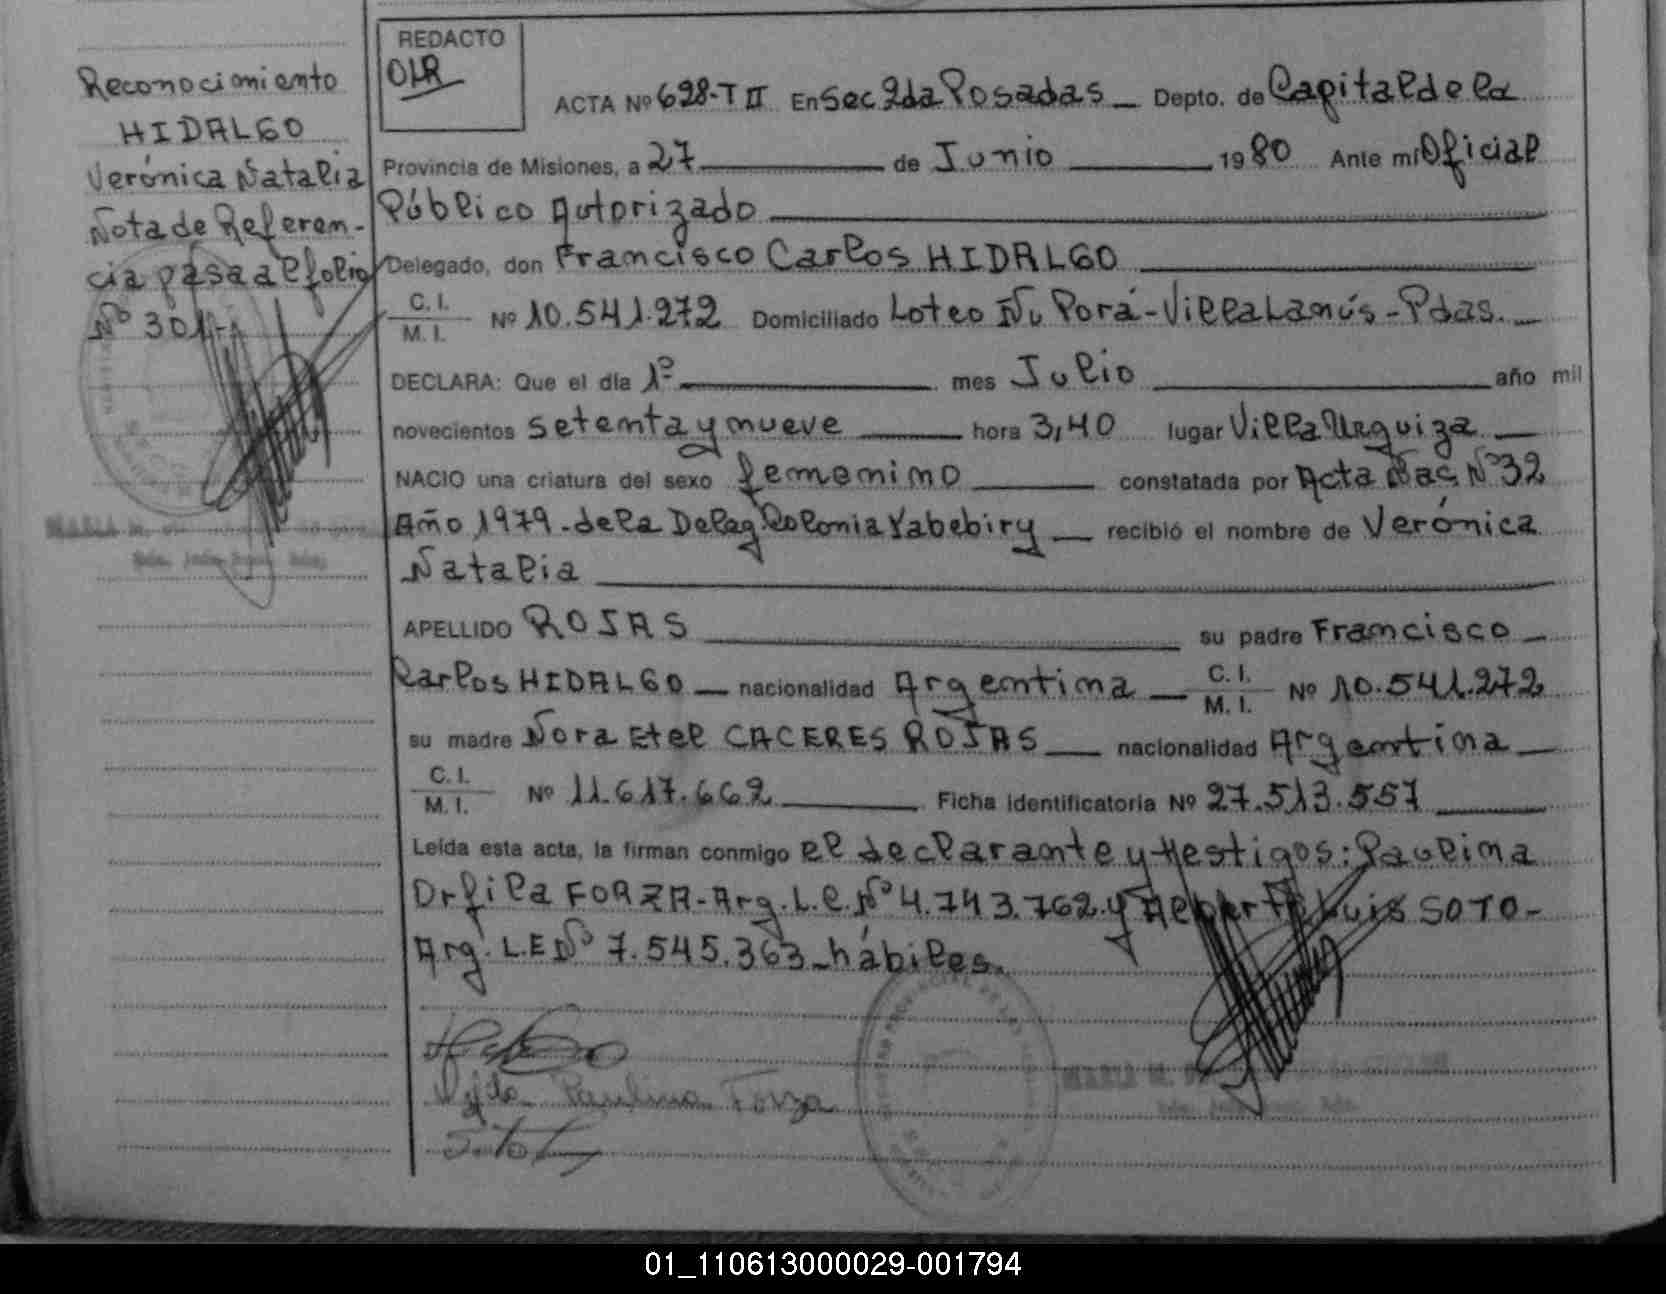 Reconocimiento
HIDALGO
Verónica Natalia
Nota de Referen-
cia pasa al folio
Nº 301.-
REDACTO
OLR
ACTA Nº 628-T II En Sec 2da Posadas Depto. de Capital de la
Provincia de Misiones, a 27 de Junio 1980 Ante mí Oficial
Público Autorizado
Delegado, don Francisco Carlos HIDALGO
C. I.
M. I. Nº 10.541.272 Domiciliado Loteo Ñu Porá-Villa Lanús-Pdas.
DECLARA: Que el día 1º mes Julio año mil
novecientos setenta y nueve hora 3,40 lugar Villa Urquiza
NACIO una criatura del sexo femenino constatada por Acta Nac Nº 32
Año 1979-de la Deleg Colonia Yabebiry recibió el nombre de Verónica
Natalia
APELLIDO ROJAS su padre Francisco
Carlos HIDALGO nacionalidad Argentina C. I.
M. I. Nº 10.541.272
su madre Nora Etel CACERES ROJAS nacionalidad Argentina
C. I.
M. I. Nº 11.617.662 Ficha identificatoria Nº 27.513.557
Leída esta acta, la firman conmigo el declarante y testigos: Paulina
Orfila FORZA-Arg. L.C. Nº 4.743.762 y Luis SOTO-
Arg. L.E Nº 7.545.363-hábiles.
Paulina Forza
01_110613000029-001794